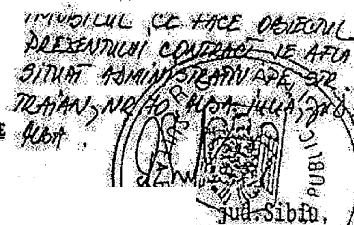 IMOBILUL CE FACE OBIECTUL
PREZENTULUI CONTRACT SE AFLA
SITUAT ADMINISTRATIV PE STR
TRAIAN, NR 70 ALBA IULIA, JUD
ALBA.
jud.Sibiu,